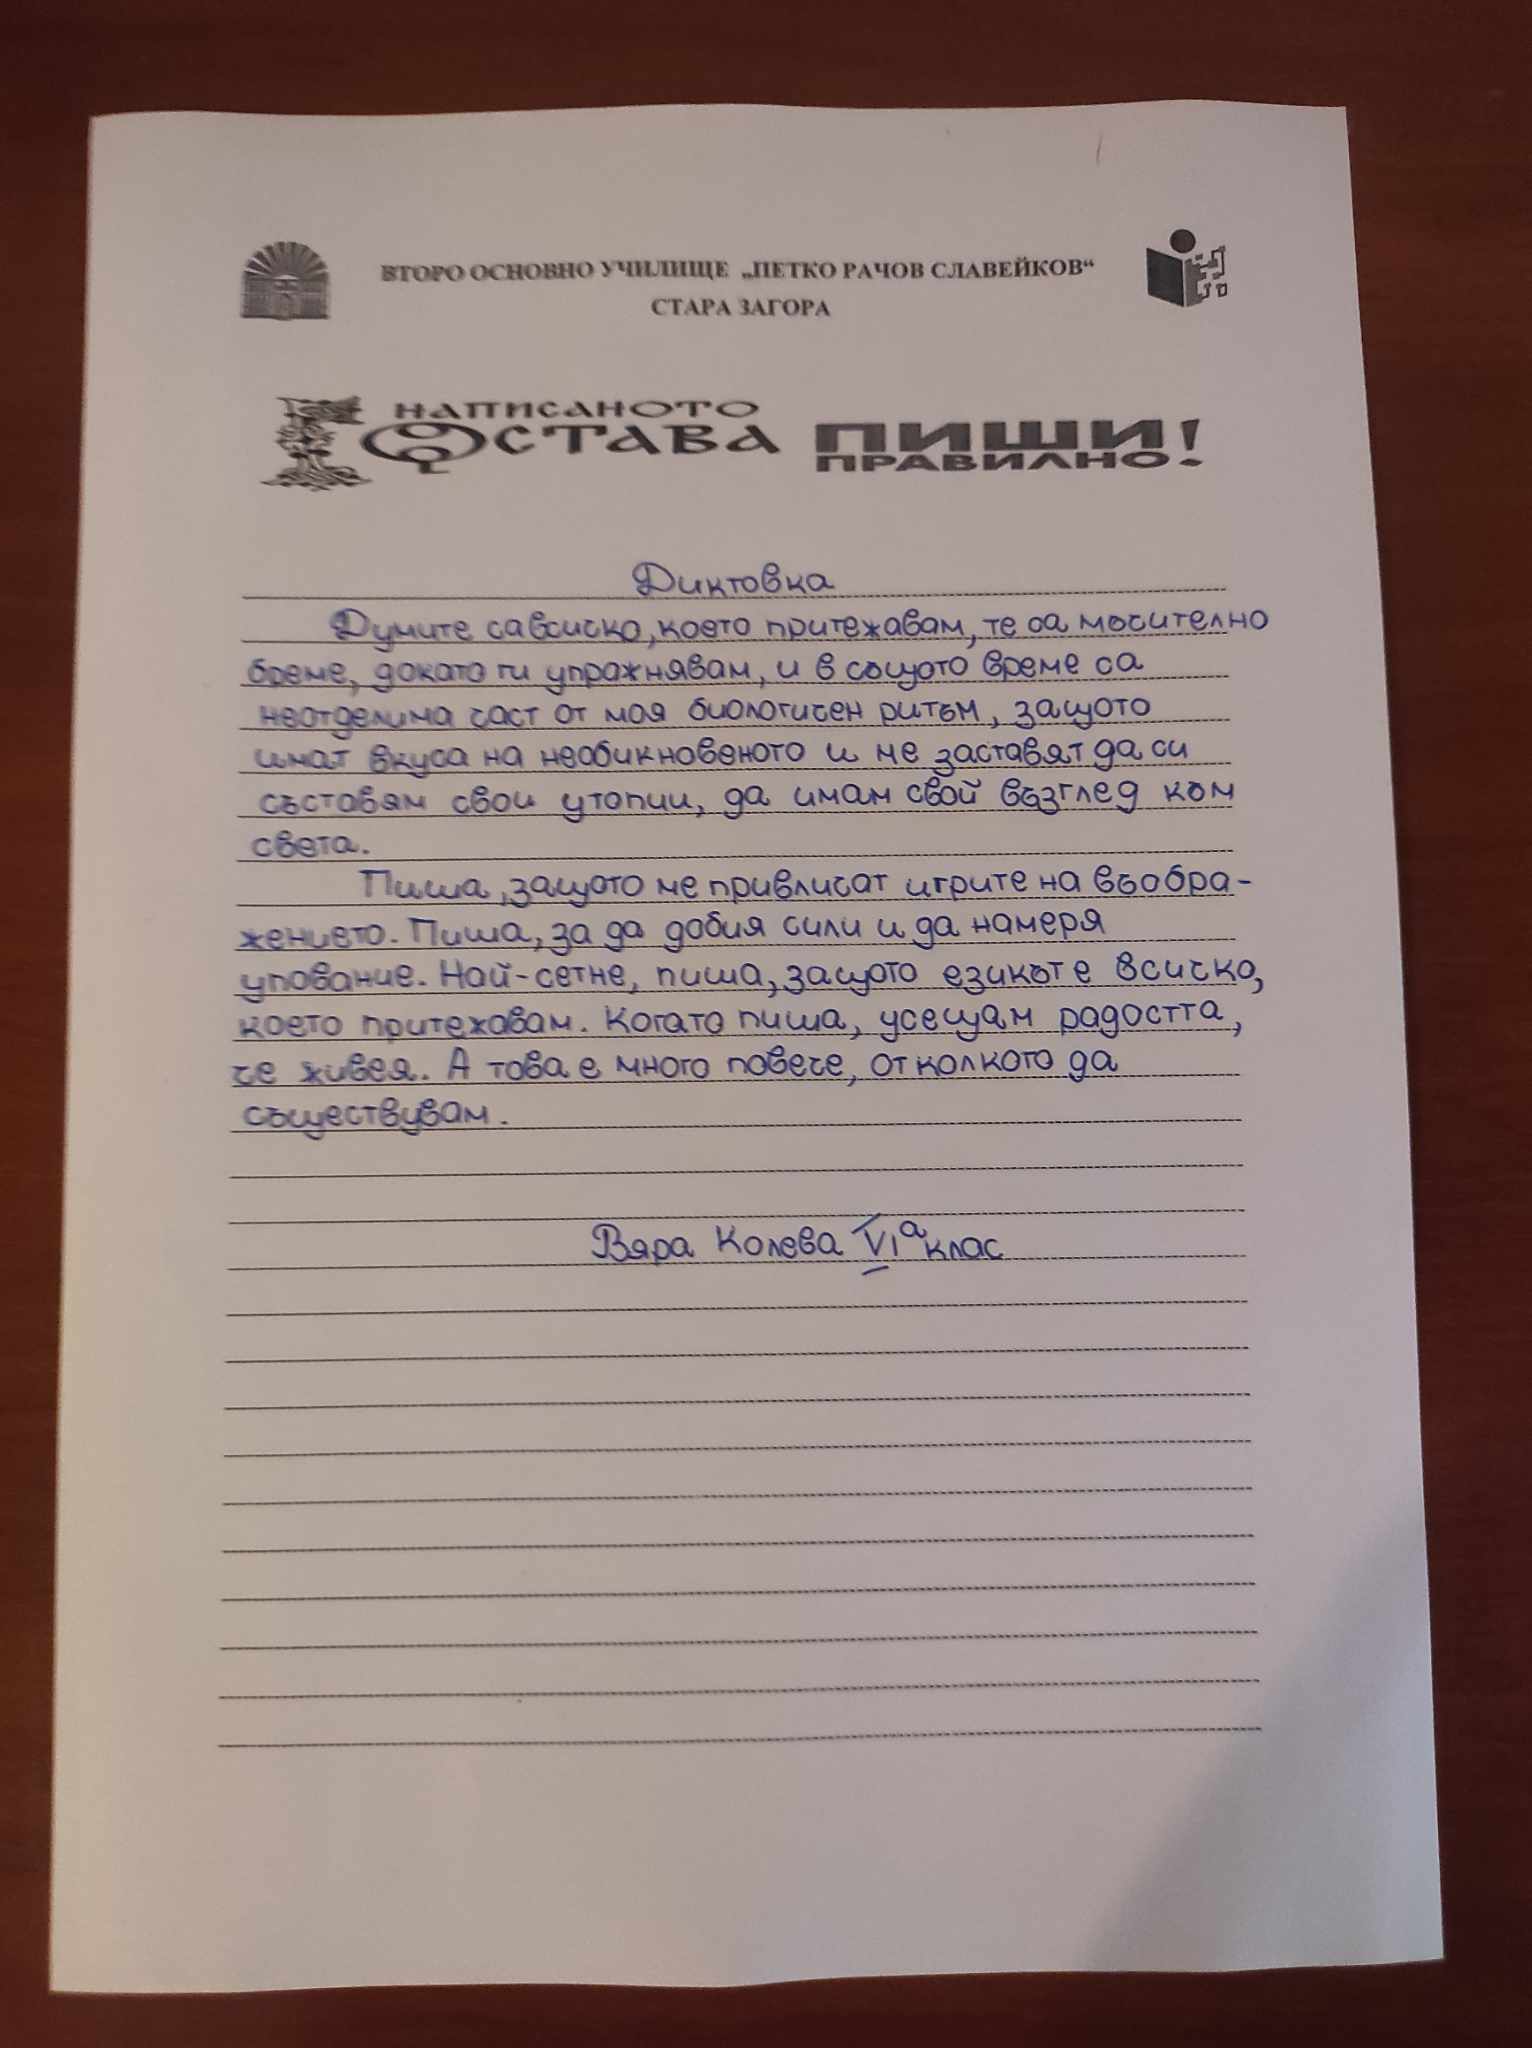 ВТОРО ОСНОВНО УЧИЛИЩЕ „ПЕТКО РАЧОВ СЛАВЕЙКОВ“
СТАРА ЗАГОРА
НАПИСАНОТО
ОСТАВА
ПИШИ
ПРАВИЛНО!
Диктовка
Думите са всичко, което притежавам, те са мъчително
бреме, докато ги упражнявам, и в същото време са
неотделима част от моя биологичен ритъм, защото
имат вкуса на необикновеното и ме заставят да си
съставям свои утопии, да имам свой възглед към
света.
Пиша, защото ме привличат игрите на въобра-
жението. Пиша, за да добия сили и да намеря
упование. Най-сетне, пиша, защото езикът е всичко,
което притежавам. Когато пиша, усещам радостта,
че живея. А това е много повече, отколкото да
съществувам.
Вяра Колева VIа клас